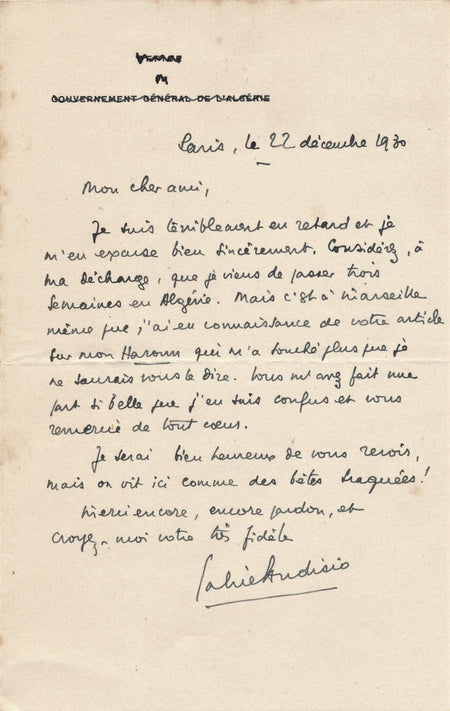 GOUVERNEMENT GÉNÉRAL DE L'ALGÉRIE
Paris, le 22 décembre 1930
Mon cher ami,
Je suis terriblement en retard et je
m'en excuse bien sincèrement. Considérez, à
ma décharge, que je viens de passer trois
semaines en Algérie. Mais c'est à Marseille
même que j'ai eu connaissance de votre article
sur mon Haroun qui m'a touché plus que je
ne saurais vous le dire. Vous m'avez fait une
part si belle que j'en suis confus et vous
remercie de tout cœur.
Je serai bien heureux de vous revoir,
mais on vit ici comme des bêtes traquées !
Merci encore, encore pardon, et
croyez-moi votre très fidèle
Gabriel Audisio